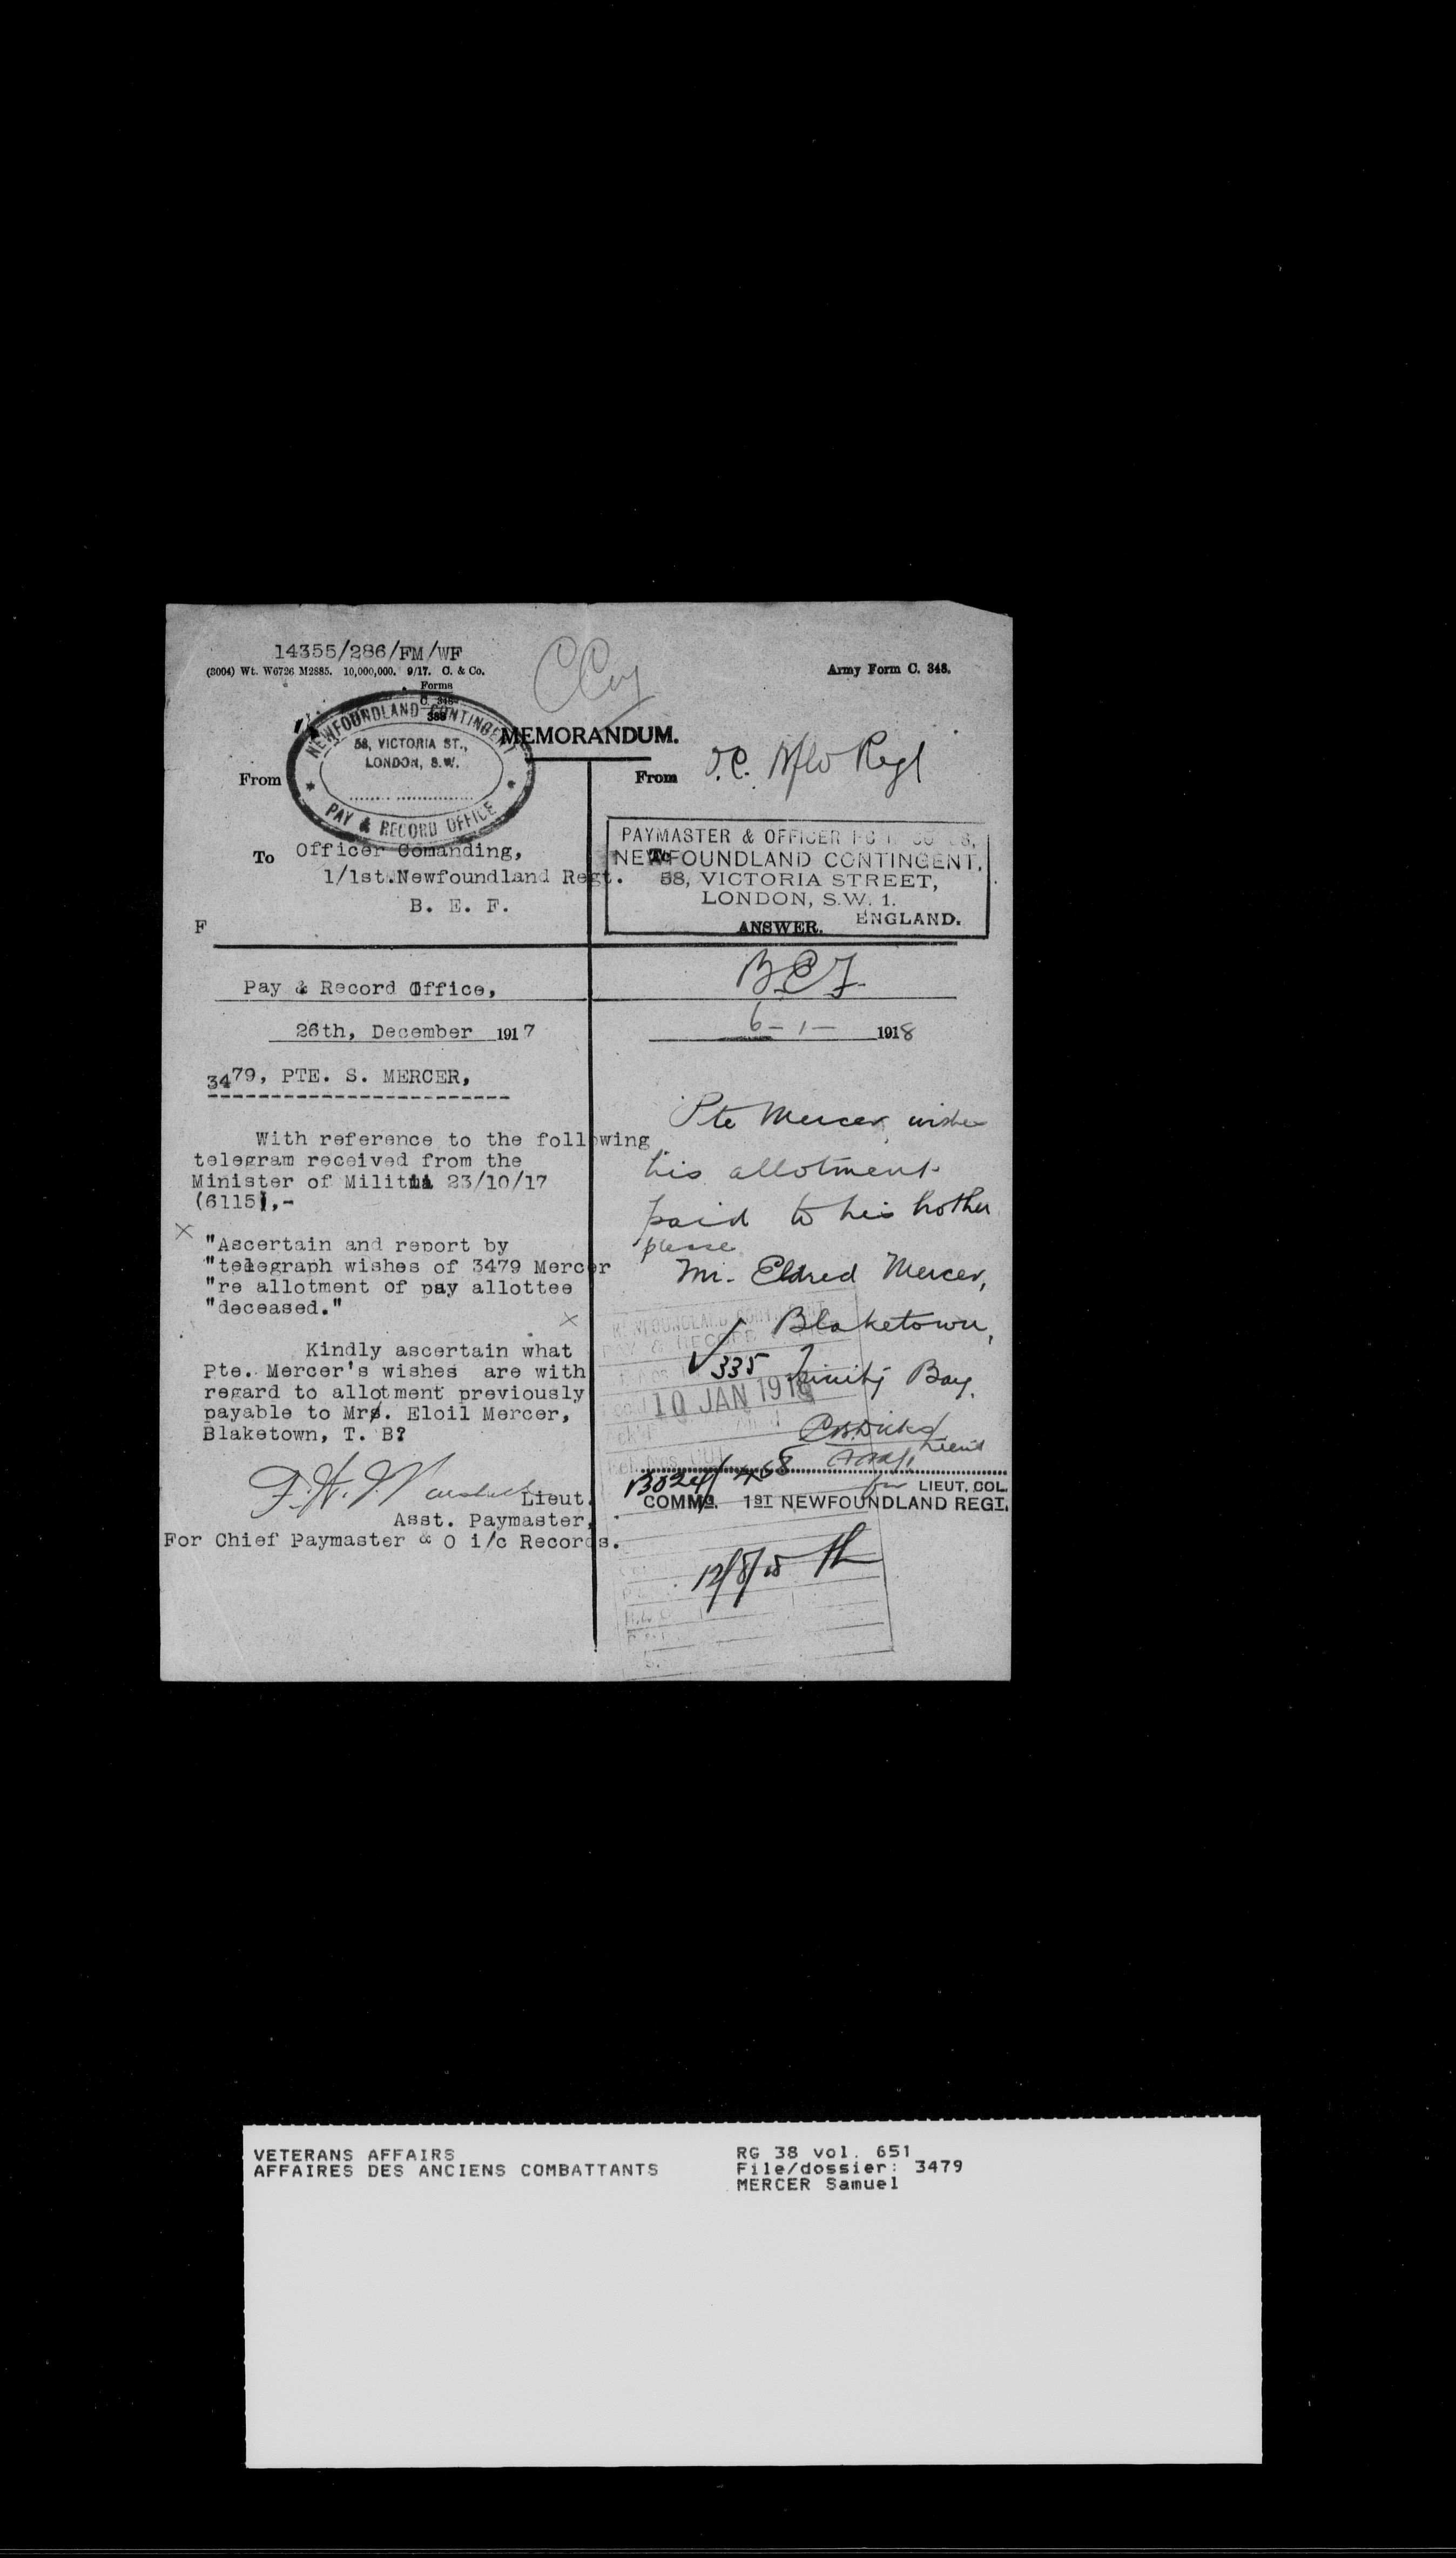 14355/286/FM/WF
(3004) Wt. W6726 M2885. 10,000,000. 9/17. C. & Co.
Army Form C. 348.
Forms
C. 348
388
C Coy
NEWFOUNDLAND CONTINGENT
58, VICTORIA ST.,
LONDON, S.W.
PAY & RECORD OFFICE
MEMORANDUM.
From
To Officer Comanding,
1/1st.Newfoundland Regt.
B. E. F.
F
Pay & Record Office,
26th, December 1917
3479, PTE. S. MERCER,
With reference to the following
telegram received from the
Minister of Militia 23/10/17
(6115),-
"Ascertain and report by
"telegraph wishes of 3479 Mercer
"re allotment of pay allottee
"deceased."
Kindly ascertain what
Pte. Mercer's wishes are with
regard to allotment previously
payable to Mrs. Eloil Mercer,
Blaketown, T. B?
Lieut.
Asst. Paymaster,
For Chief Paymaster & O i/c Records.
From O.C. Nfld Regt
PAYMASTER & OFFICER
To
NEWFOUNDLAND CONTINGENT,
58, VICTORIA STREET,
LONDON, S.W. 1.
ENGLAND.
ANSWER.
B.E.F.
6-1- 1918
Pte Mercer wishes
his allotment
paid to his brother
please
Mr. Eldred Mercer,
Blaketown,
335 Trinity Bay.
10 JAN 1918
Lieut
for LIEUT. COL.
COMMG. 1ST NEWFOUNDLAND REGT.
VETERANS AFFAIRS
AFFAIRES DES ANCIENS COMBATTANTS
RG 38 vol. 651
File/dossier: 3479
MERCER Samuel